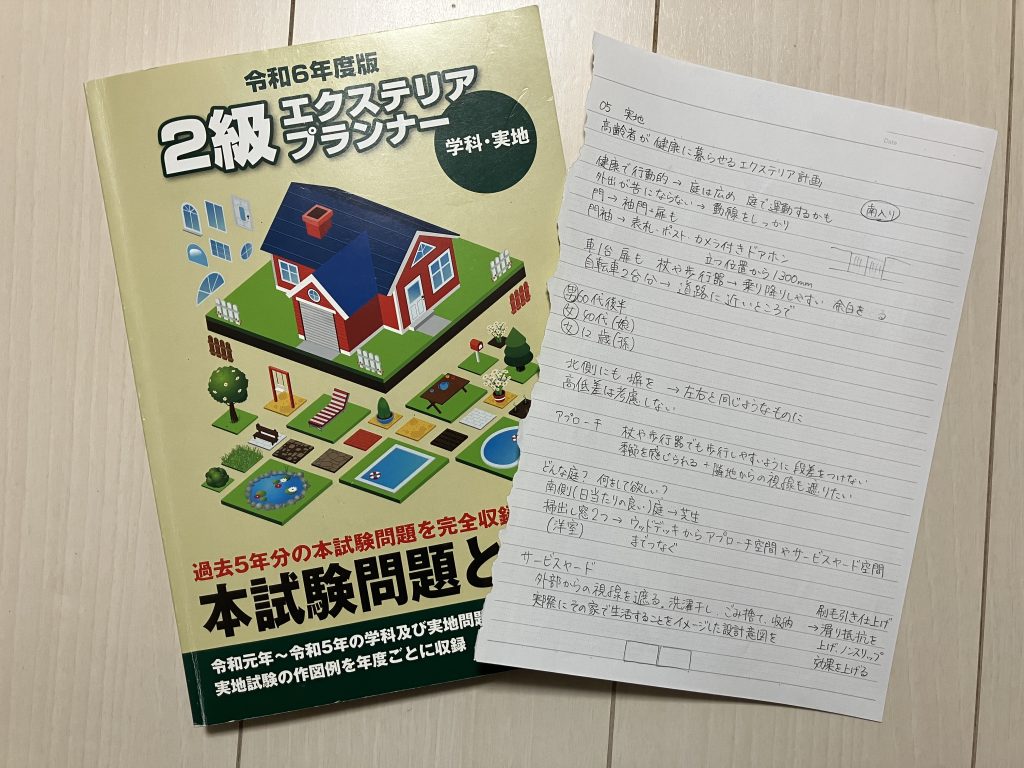 令和6年度版
2級 エクステリア
プランナー
学科・実地
過去5年分の本試験問題を完全収録
本試験問題と
令和元年～令和5年の学科及び実地問題
実地試験の作図例を年度ごとに収録
Date
05 実地
高齢者が健康に暮らせるエクステリア計画
健康で行動的→庭は広め 庭で運動するかも
南入り
外出が苦にならない→動線をしっかり
門→袖門+扉も
門袖→表札・ポスト・カメラ付きドアホン
立つ位置から1300mm
車1台 扉も 杖や歩行器→乗り降りしやすい 余白を
自転車2台分→道路に近いところで
男60代後半
女40代(娘)
女12歳(孫)
北側にも塀を→左右と同じようなものに
高低差は考慮しない
アプローチ 杖や歩行器でも歩行しやすいように段差をつけない
季節を感じられる+隣地からの視線も遮りたい
どんな庭? 何をして欲しい?
南側(日当たりの良い)庭→芝生
掃出し窓2つ→ウッドデッキからアプローチ空間やサービスヤード空間
(洋室) までつなぐ
サービスヤード
外部からの視線を遮る、洗濯干し、ごみ捨て、収納
実際にその家で生活することをイメージした設計意図を
刷毛引き仕上げ
→滑り抵抗を
上げ、ノンスリップ
効果を上げる